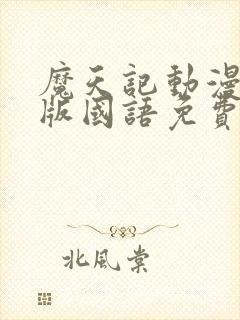 魔天記動漫
版國語免費
北風棠